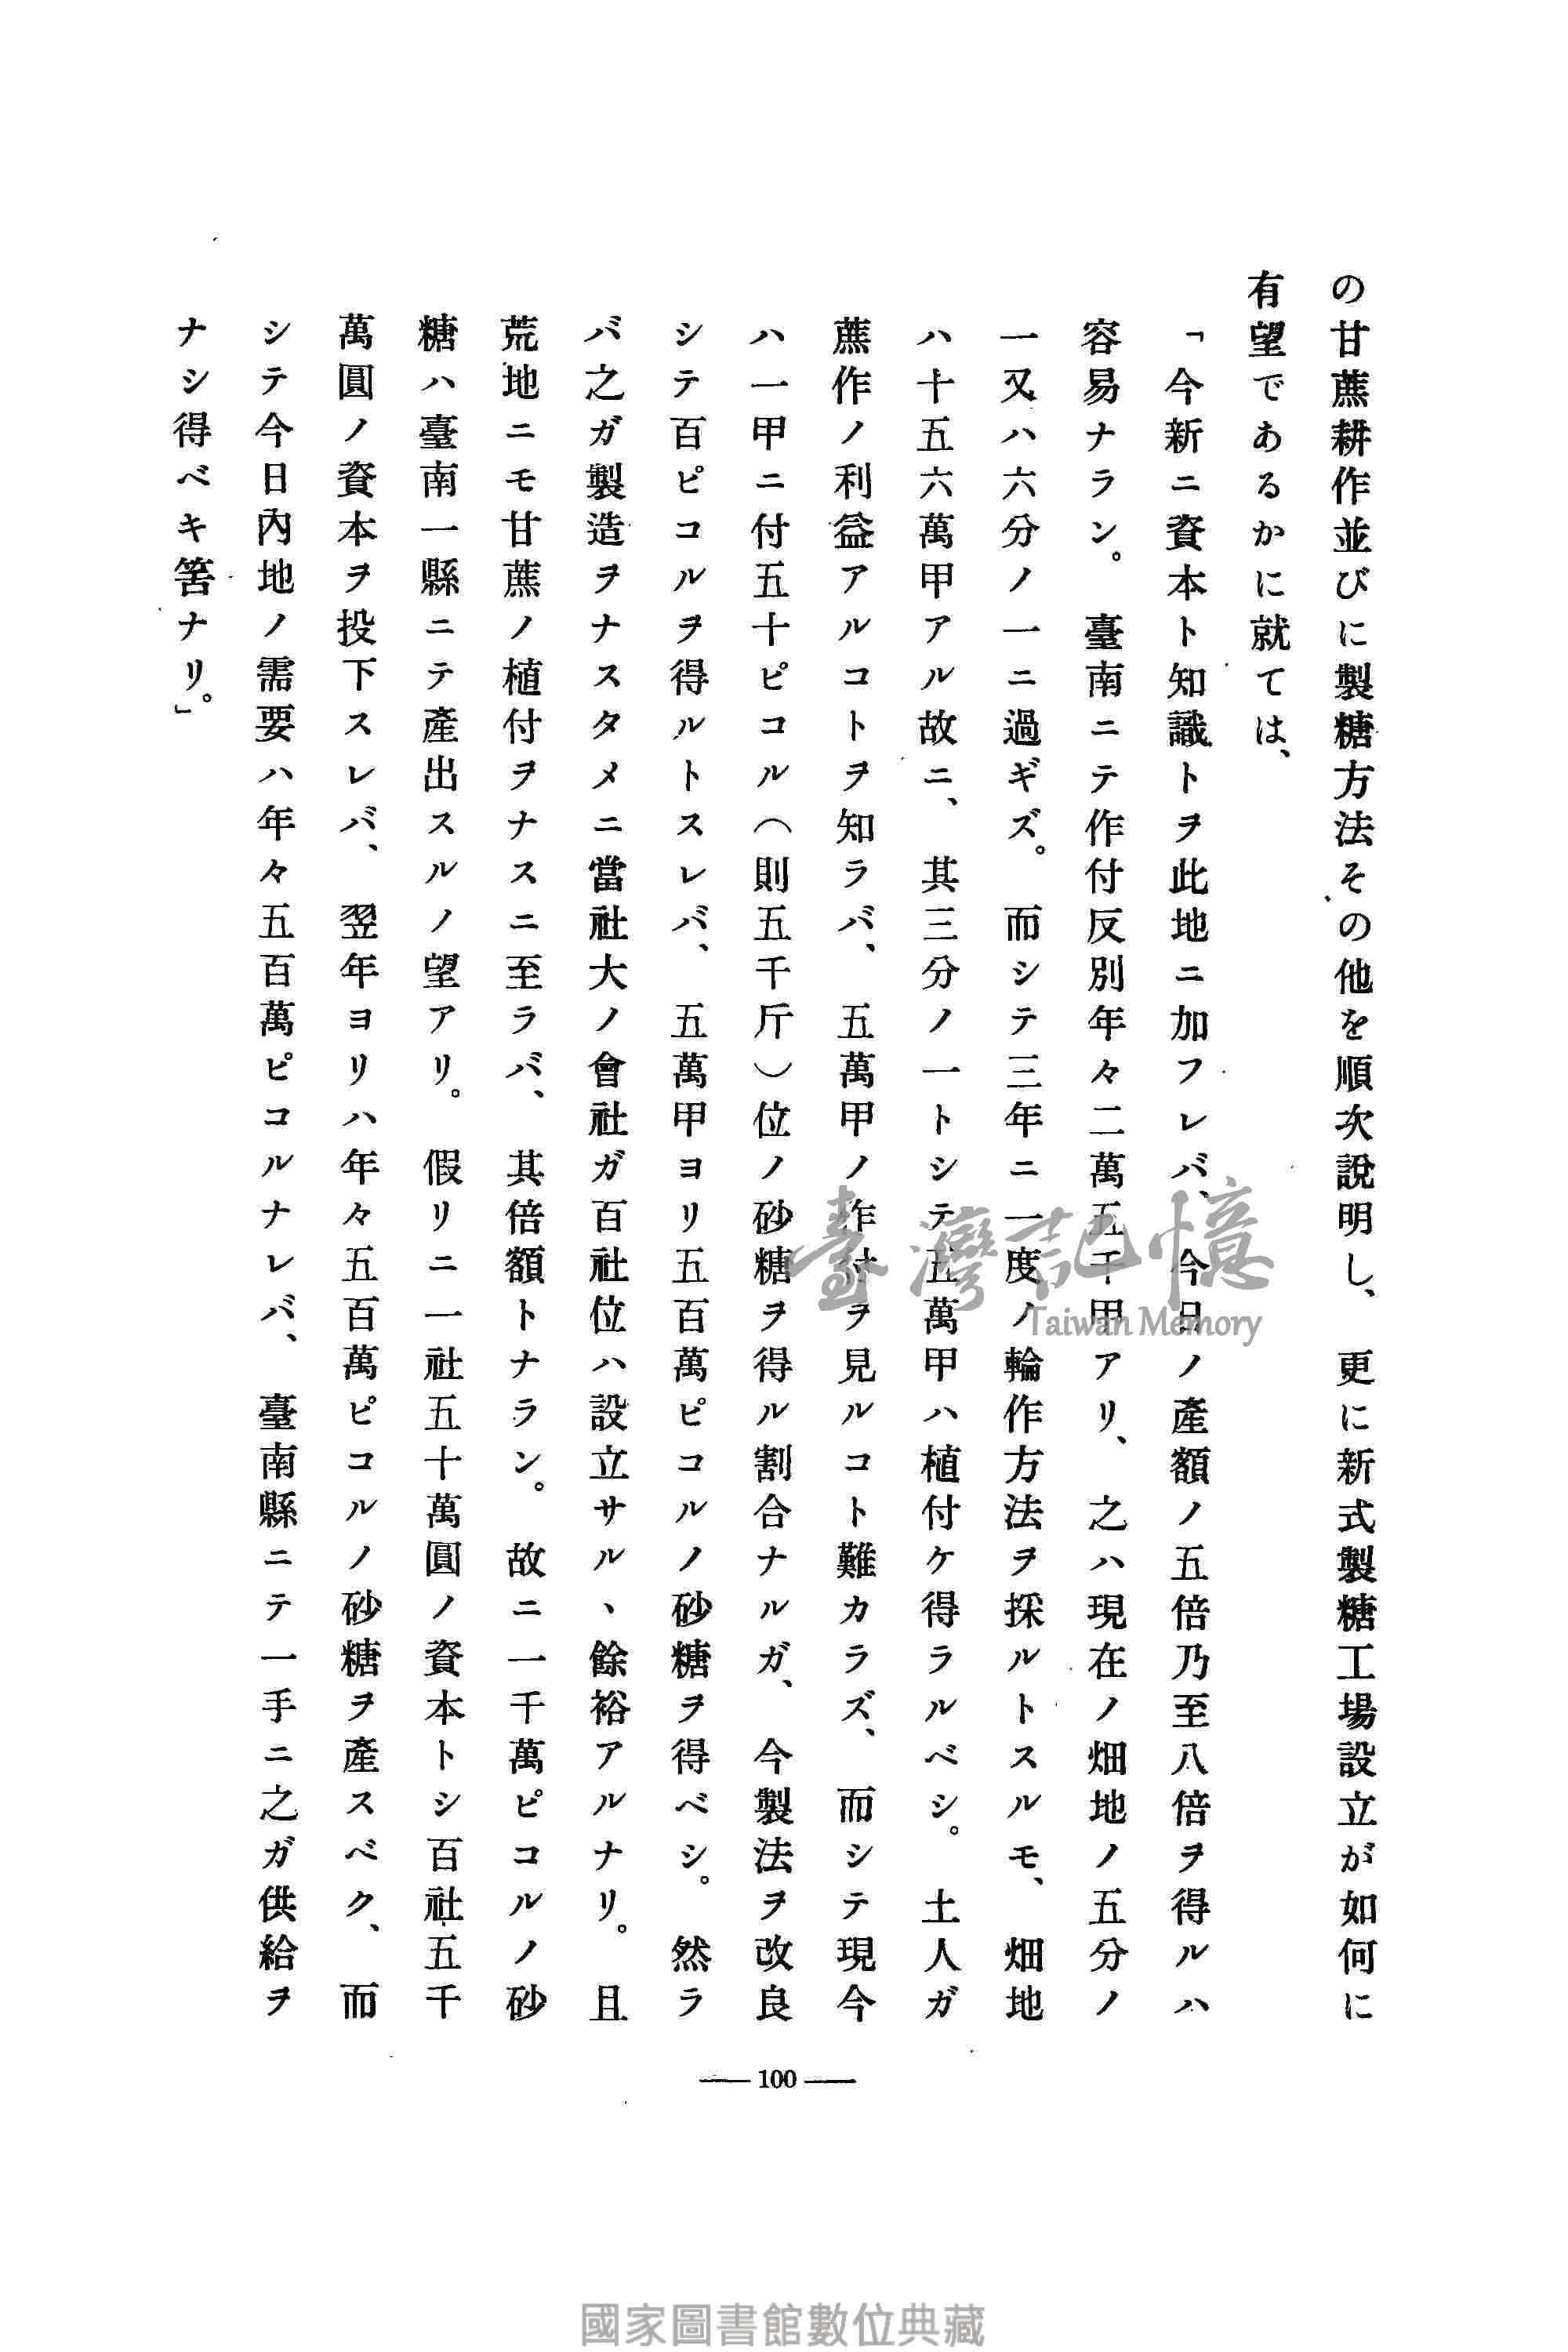 の甘蔗耕作並びに製糖方法その他を順次說明し、更に新式製糖工場設立が如何に
有望であるかに就ては、
「今新ニ資本ト知識トヲ此地ニ加フレバ、今日ノ產額ノ五倍乃至八倍ヲ得ルハ
容易ナラン。臺南ニテ作付反別年々二萬五千甲アリ、之ハ現在ノ畑地ノ五分ノ
一又ハ六分ノ一ニ過ギズ。而シテ三年ニ一度ノ輪作方法ヲ採ルトスルモ、畑地
ハ十五六萬甲アル故ニ、其三分ノ一トシテ五萬甲ハ植付ケ得ラルベシ。土人ガ
蔗作ノ利益アルコトヲ知ラバ、五萬甲ノ作付ヲ見ルコト難カラズ、而シテ現今
ハ一甲ニ付五十ピコル（則五千斤）位ノ砂糖ヲ得ル割合ナルガ、今製法ヲ改良
シテ百ピコルヲ得ルトスレバ、五萬甲ヨリ五百萬ピコルノ砂糖ヲ得ベシ。然ラ
バ之ガ製造ヲナスタメニ當社大ノ會社ガ百社位ハ設立サルヽ餘裕アルナリ。且
荒地ニモ甘蔗ノ植付ヲナスニ至ラバ、其倍額トナラン。故ニ一千萬ピコルノ砂
糖ハ臺南一縣ニテ產出スルノ望アリ。假リニ一社五十萬圓ノ資本トシ百社五千
萬圓ノ資本ヲ投下スレバ、翌年ヨリハ年々五百萬ピコルノ砂糖ヲ產スベク、而
シテ今日內地ノ需要ハ年々五百萬ピコルナレバ、臺南縣ニテ一手ニ之ガ供給ヲ
ナシ得ベキ筈ナリ。」
— 100 —
臺灣記憶
Taiwan Memory
國家圖書館數位典藏